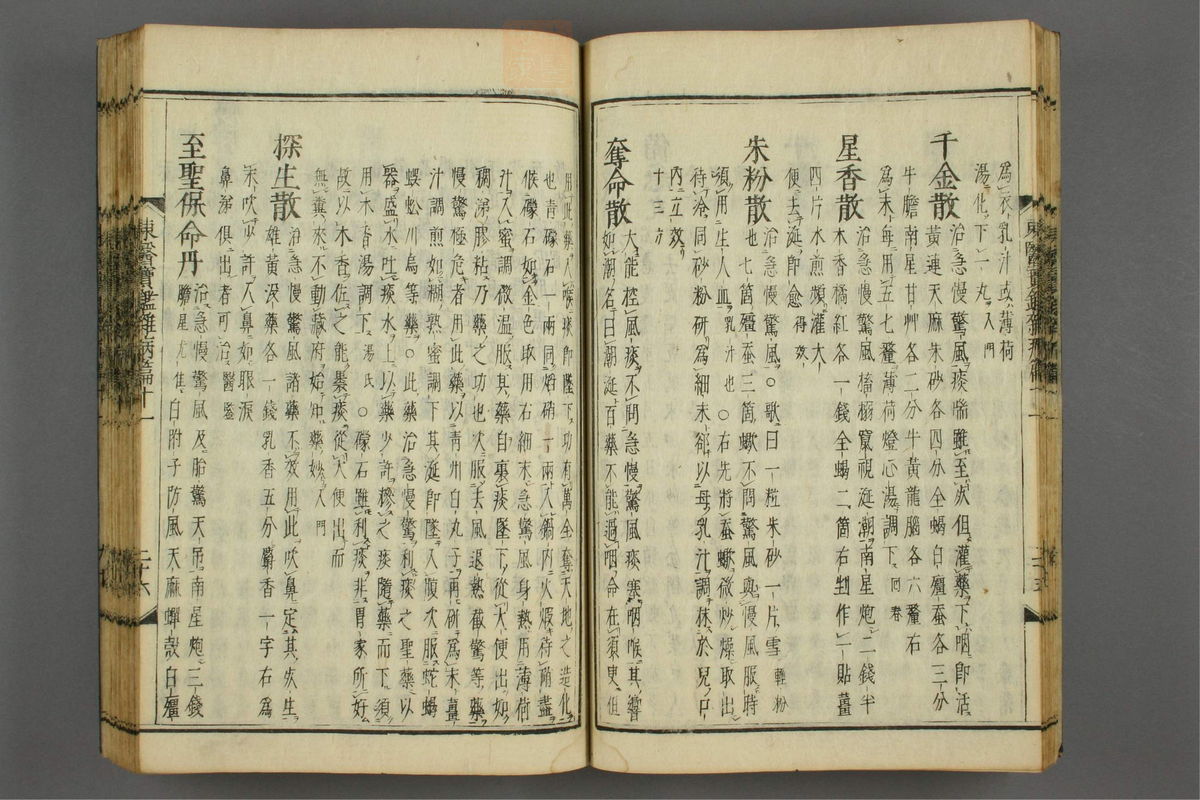 爲衣乳汁或薄荷
湯化下一丸入門
千金散 治急慢驚風痰喘雖至死但灌藥下咽即活
黃連天麻朱砂各四分全蝎白殭蚕各三分
牛膽南星甘艸各二分牛黃龍腦各六釐右
爲末每用五七釐薄荷燈心湯調下回春
星香散 治急慢驚風搐搦竄視涎潮南星炮二錢半
木香橘紅各一錢全蝎二箇右剉作一貼薑
四片水煎頻灌大
便去涎即愈得效
朱粉散 治急慢驚風○歌曰一粒朱砂一片雪輕粉
也七箇殭蚕三箇蝎不問驚風與慢風服時
須用生人血乳汁也○右先將蚕蝎微炒燥取出
待冷同砂粉研爲細末却以母乳汁調抹於兒口
內立效
十三方
奪命散 大能控風痰不問急慢驚風痰塞咽喉其響
如潮名曰潮涎百藥不能過咽命在須臾但
用此藥入喉痰即墜下功有萬全奪天地之造化
也靑礞石一兩同焰硝一兩入鍋內火煆待硝盡
候礞石如金色取用右細末急驚風身熱用薄荷
汁入蜜調微溫服其藥自裹痰墜下從大便出如
稠涕膠粘乃藥之功也次服去風退熱截驚等藥
慢驚極危者用此藥以靑州白丸子再研爲末薑
汁調煎如糊熟蜜調下其涎即墜入腹次服蛇蝎
蜈蚣川烏等藥○此藥治急慢驚利痰之聖藥以
器盛水吐痰水上以藥少許糝之痰隨藥而下須
用木香湯調下湯氏○礞石雖利痰非胃家所好
故以木香佐之能裹痰從大便出而
無糞來不動藏府始知藥妙入門
探生散 治急慢驚風諸藥不效用此吹鼻定其死生
雄黃沒藥各一錢乳香五分麝香一字右爲
末吹少許入鼻如眼淚
鼻涕俱出者可治醫鑑
至聖保命丹 治急慢驚風及胎驚天吊南星炮三錢
膽星尤佳白附子防風天麻蟬殼白殭
東醫寶鑑雜病篇十一
二十六